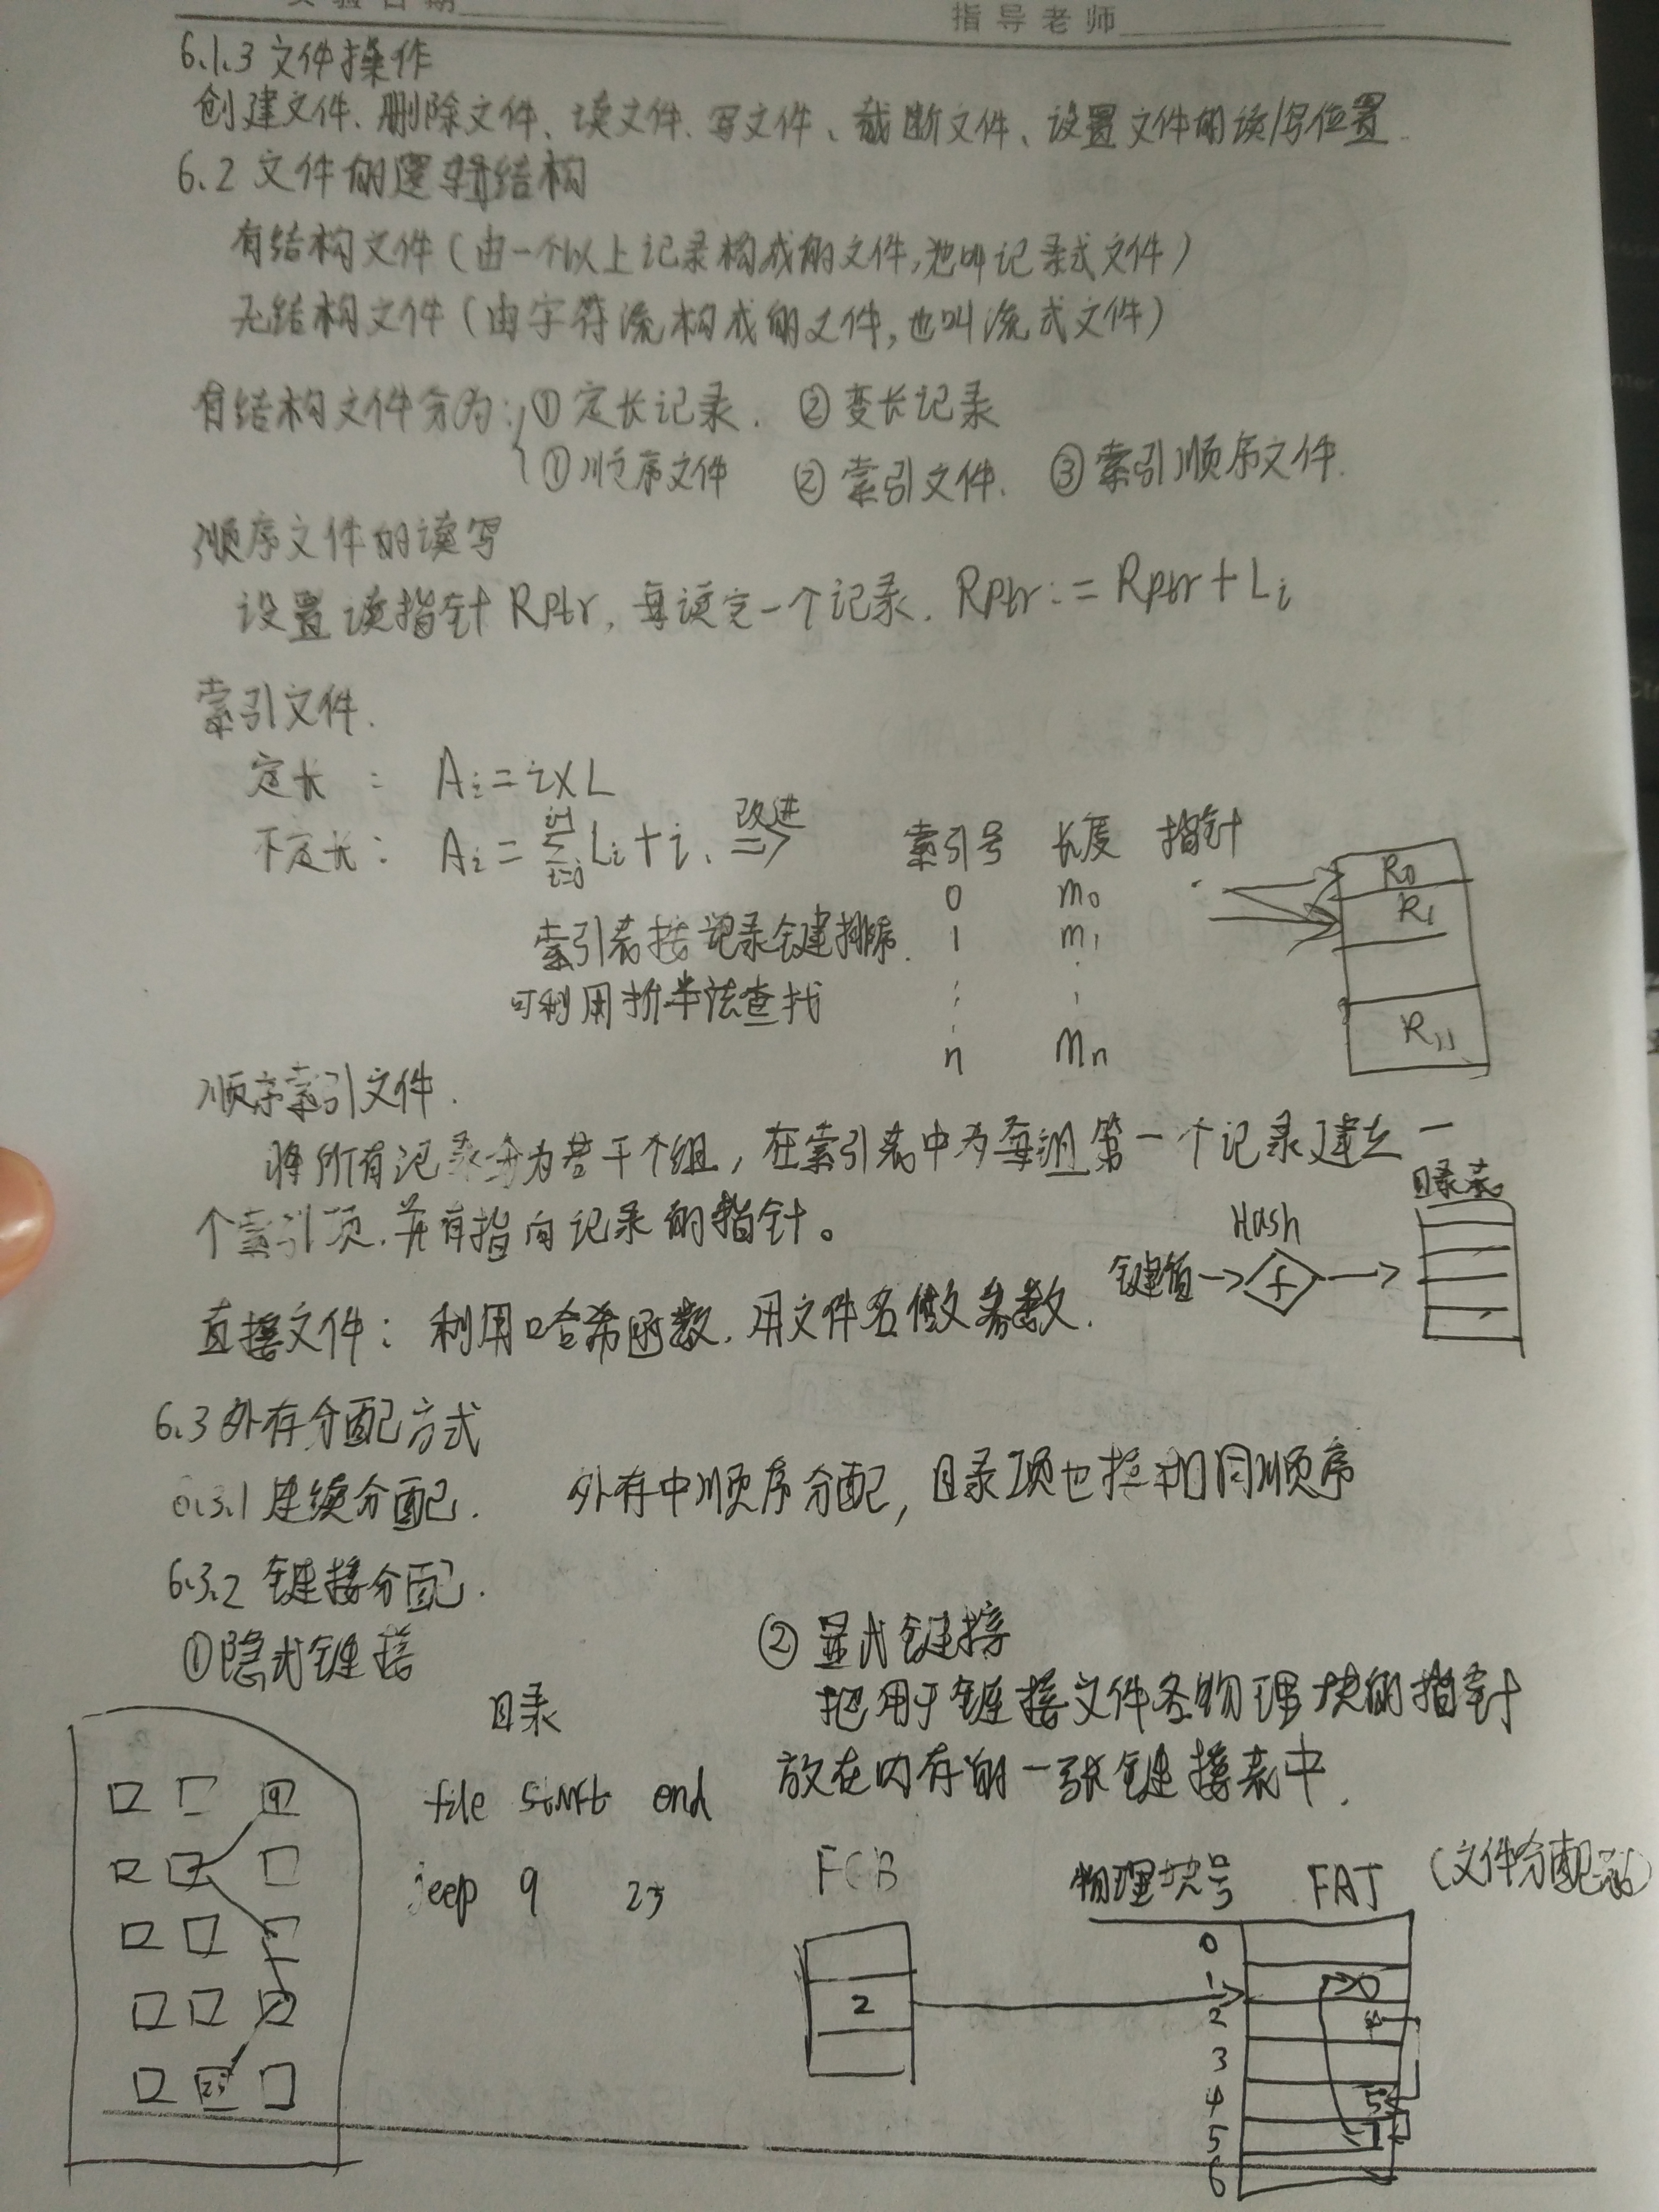 指导老师
6.1.3 文件操作
创建文件、删除文件、读文件、写文件、截断文件、设置文件的读/写位置.
6.2 文件的逻辑结构
有结构文件(由一个以上记录构成的文件,也叫记录式文件)
无结构文件(由字符流构成的文件,也叫流式文件)
有结构文件分为: ①定长记录. ②变长记录
①顺序文件 ②索引文件. ③索引顺序文件.
顺序文件的读写
设置读指针Rptr, 每读完一个记录. Rptr:=Rptr+Li
索引文件.
定长: Ai=i×L
不定长: Ai=∑(i=0, i-1) Li+i. 改进⇒
索引号 长度 指针
0 m0
1 m1
n mn
R0
R1
索引表按记录键排序.
可利用折半法查找
顺序索引文件.
将所有记录分为若干个组,在索引表中为每组第一个记录建立一
个索引项,并有指向记录的指针。
直接文件: 利用哈希函数.用文件名做参数.
键值→ Hash f → 目录表
6.3 外存分配方式
6.3.1 连续分配. 外存中顺序分配,目录项也按相同顺序
6.3.2 链接分配.
①隐式链接
目录
file start end
jeep 9 25
9
②显式链接
把用于链接文件各物理块的指针
放在内存的一张链接表中.
FCB 物理块号 FAT (文件分配表)
2
0
1 0
2 4
3
4 5
5 1
6